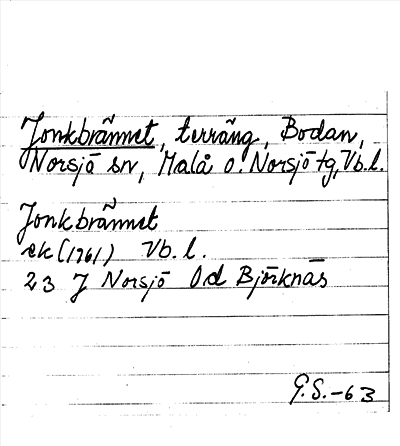 Jonkbrännet, terräng, Bodan,
Norsjö sn, Malå o. Norsjö tg, Vb.l.
Jonkbrännet
ek (1961) Vb.l.
23 J Norsjö Od Björknäs
G.S.-63